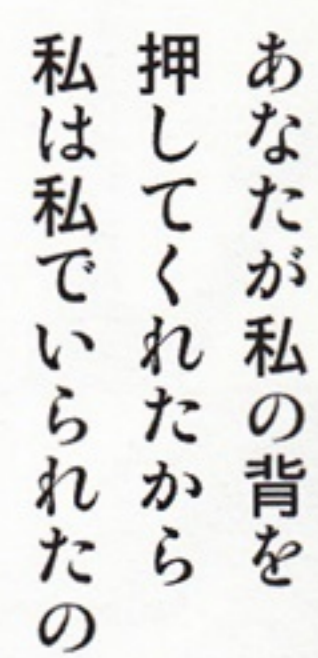 あなたが私の背を
押してくれたから
私は私でいられたの